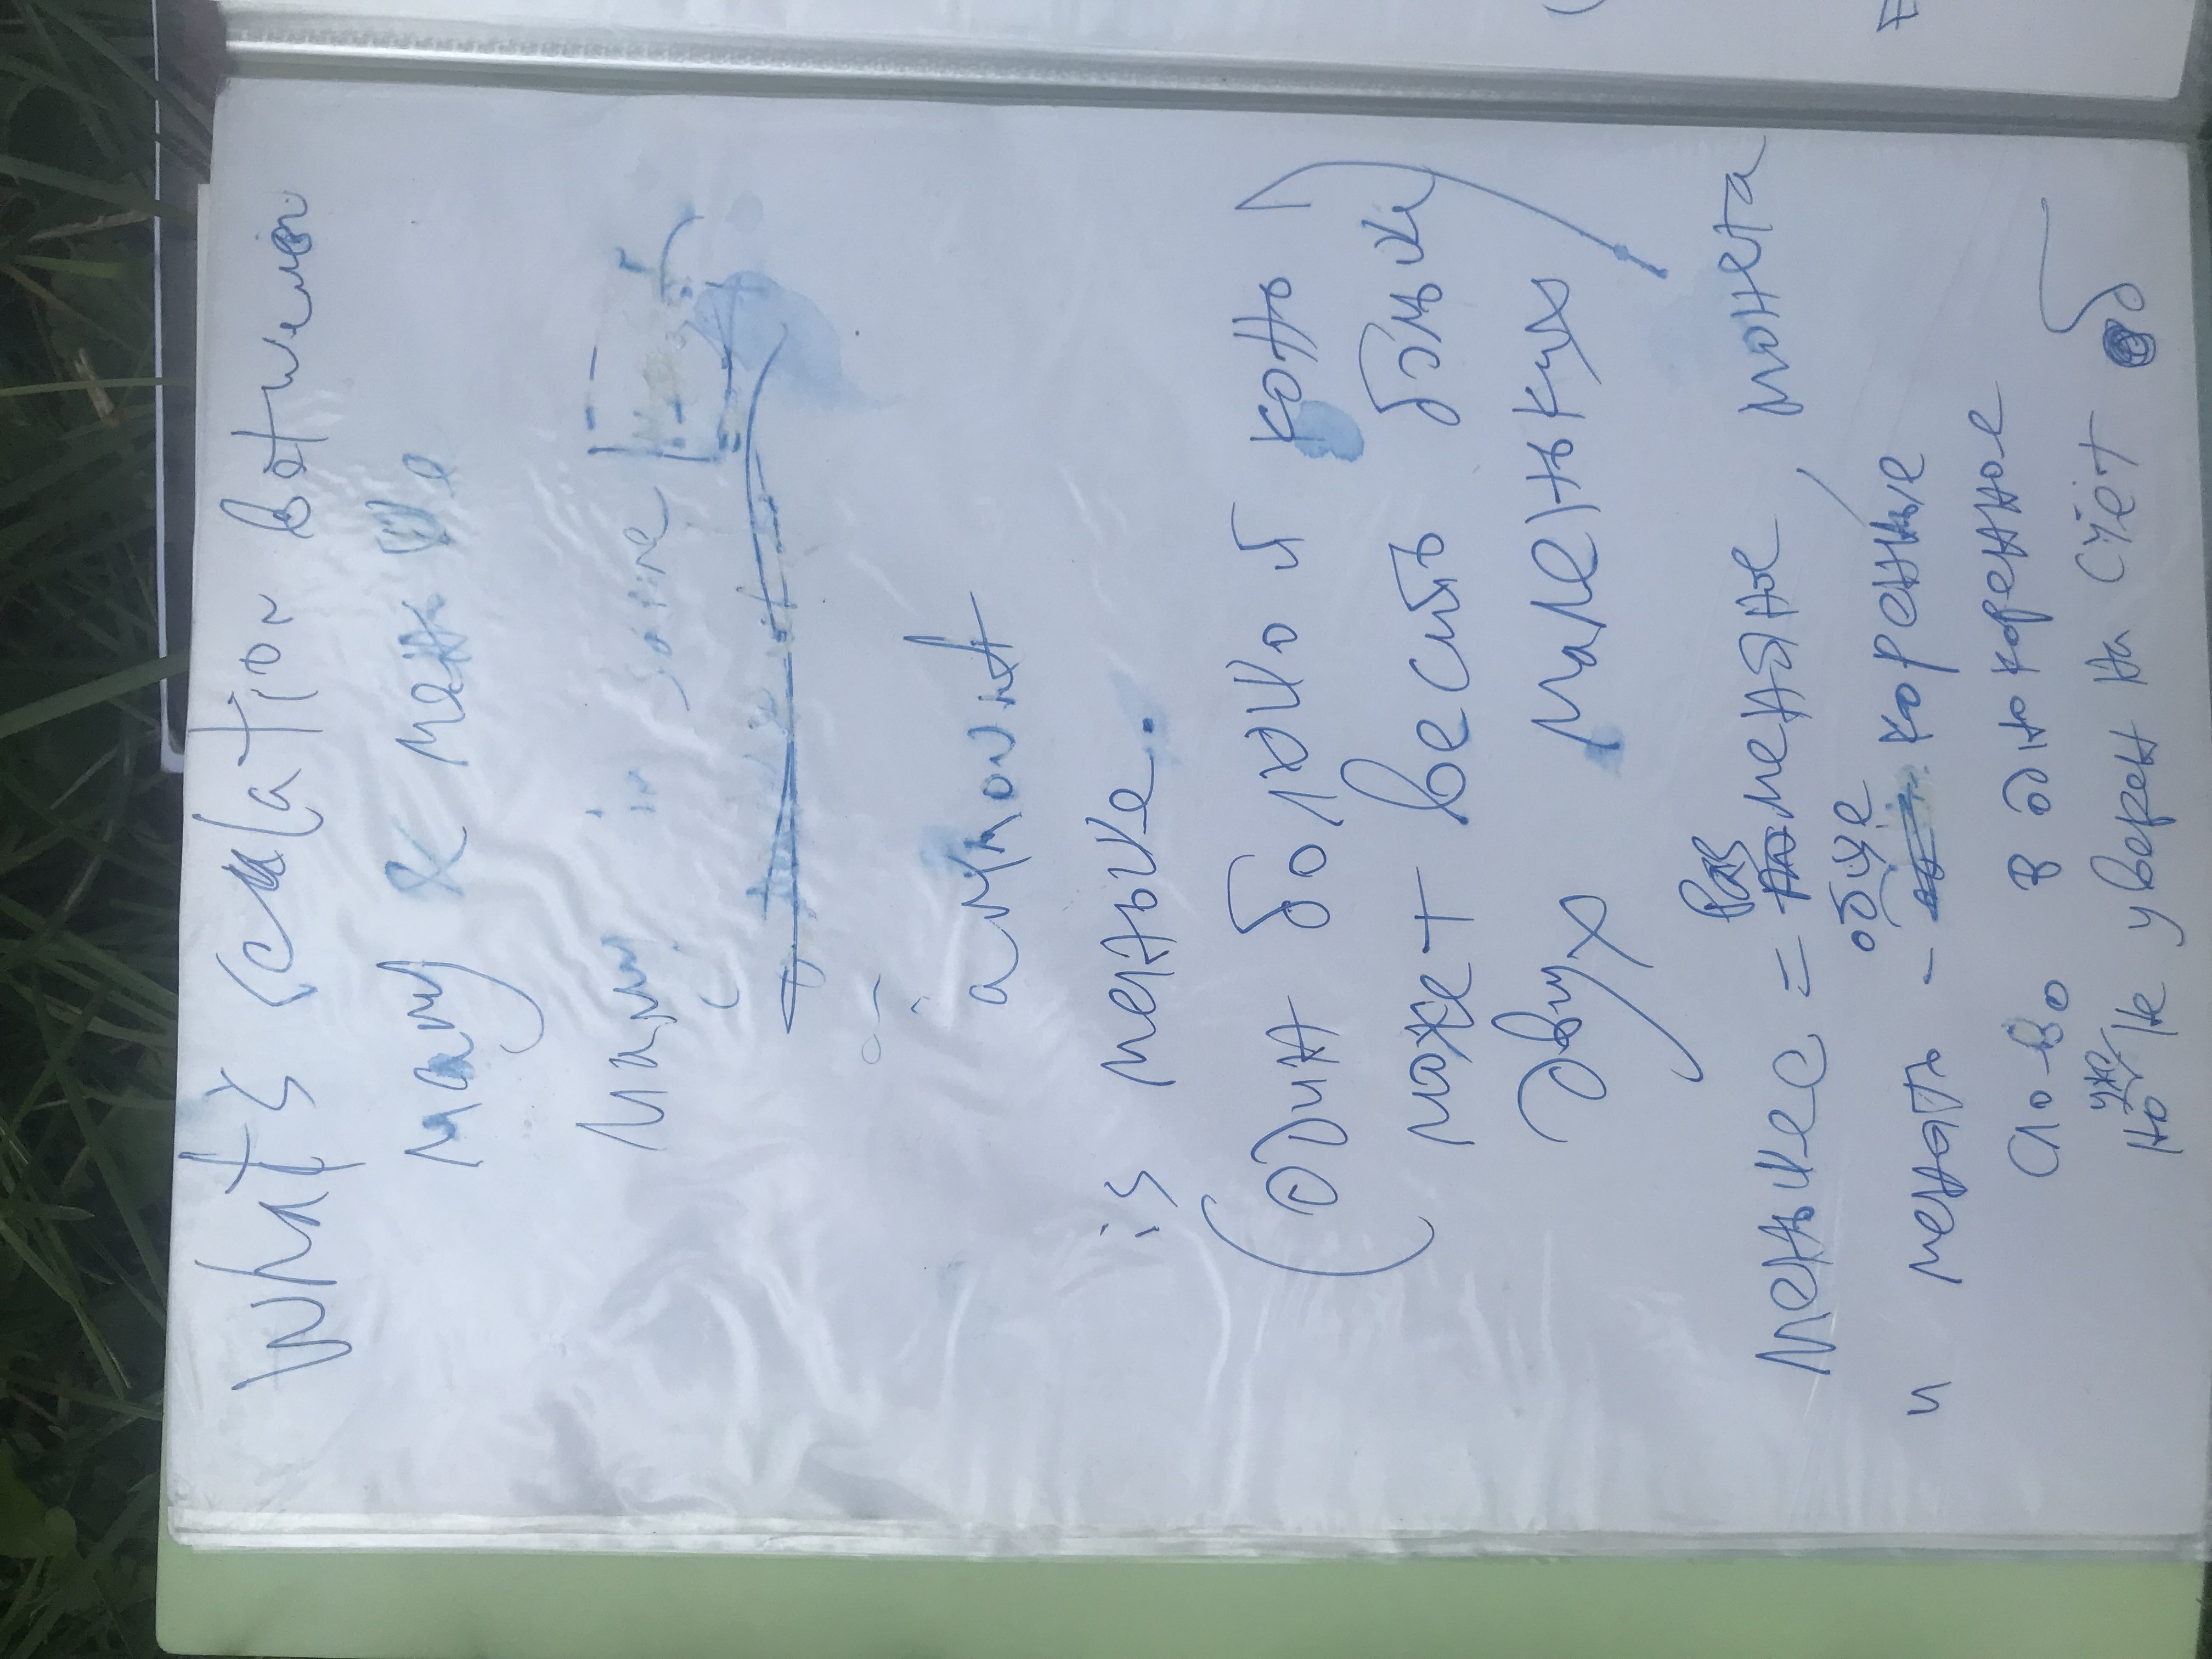 What's relation between
many & меньше
Many in same
amount
is меньше.
(один большой конь
может весить больше
двух маленьких
Раз
меньшее = меняное, монета
общe
и менять - коренные
слово в однокоренное
уже
но не уверен на счёт об